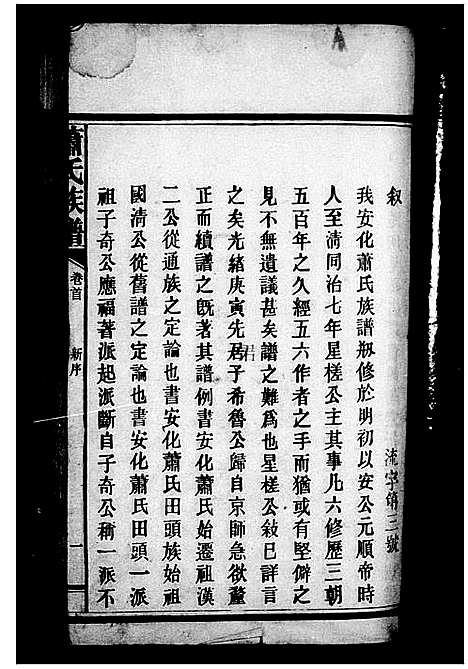 叙
我安化蕭氏族譜剏修於明初以安公元順帝時
人至清同治七年星槎公主其事凡六修歷三朝
五百年之久經五六作者之手而猶或有堅僻之
見不無遺議甚矣譜之難爲也星槎公敘已詳言
之矣光緒庚寅先君子希魯公歸自京師急欲釐
正而續譜之旣著其譜例書安化蕭氏始遷祖漢
二公從通族之定論也書安化蕭氏田頭族始祖
國清公從舊譜之定論也書安化蕭氏田頭一派
祖子奇公應福著派起派斷自子奇公稱一派不
蕭氏族譜
卷首
新序
一
流字第三號